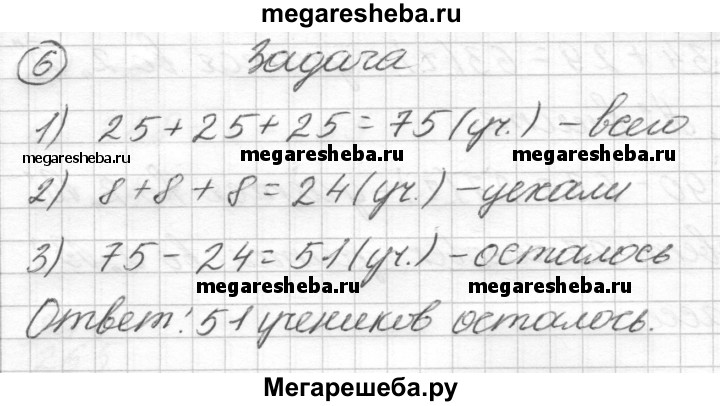 megaresheba.ru
6 Задача
1) 25+25+25=75(уч.) - всего
megaresheba.ru megaresheba.ru megaresheba.ru
2) 8+8+8=24(уч.) - уехали
3) 75-24=51(уч.) - осталось
megaresheba.ru megaresheba.ru
Ответ: 51 учеников осталось.
Мегарешеба.ру